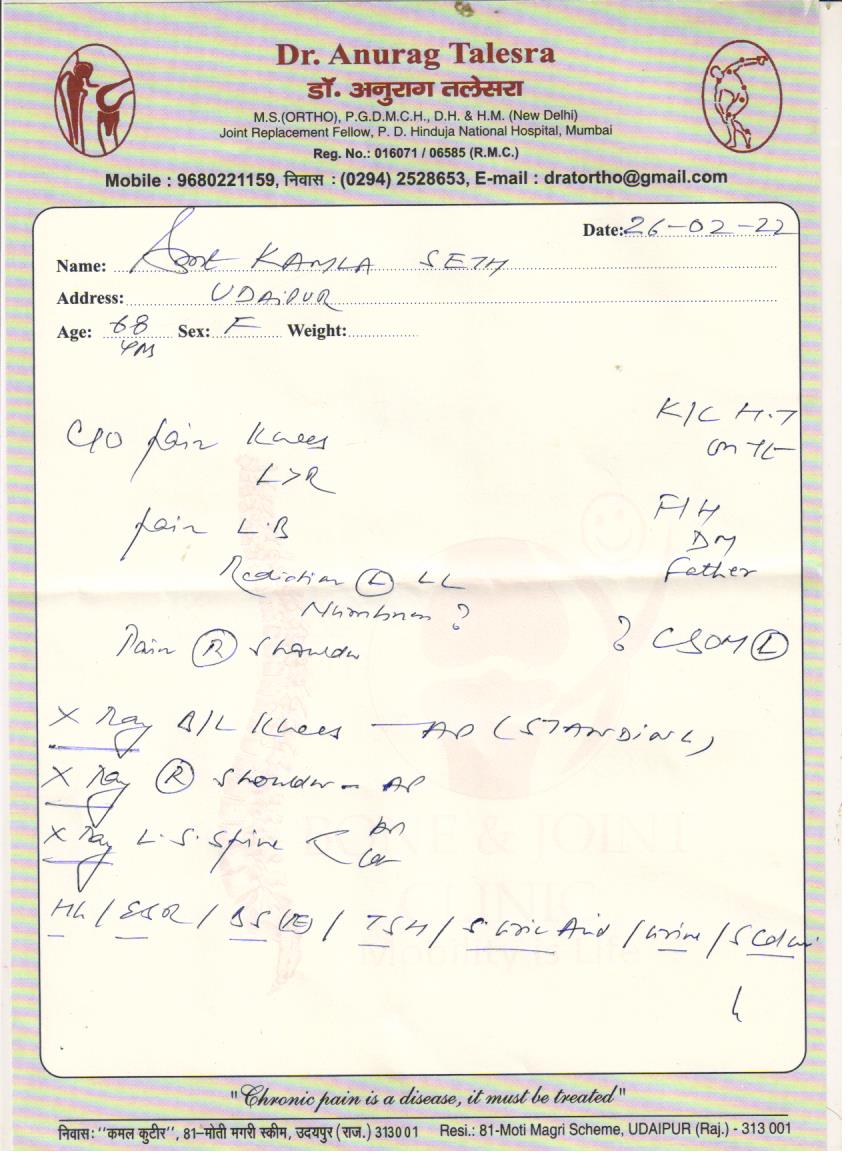 Dr. Anurag Talesra
डॉ. अनुराग तलेसरा
M.S.(ORTHO), P.G.D.M.C.H., D.H. & H.M. (New Delhi)
Joint Replacement Fellow, P. D. Hinduja National Hospital, Mumbai
Reg. No.: 016071 / 06585 (R.M.C.)
Mobile : 9680221159, निवास : (0294) 2528653, E-mail : dratortho@gmail.com
Date: 26-02-22
Name: Smt KAMLA SETH
Address: UDAIPUR
Age: 68 Sex: F Weight:
K/C H.T
C/O pain Knees
on
L>R
F/H
pain L.B
DM
Father
Radiation (L) LL
Numbness ?
Pain (R) Shoulder
? CSOM (L)
X Ray B/L Knees — AP (STANDING)
X Ray (R) Shoulder - AP
X Ray L.S. Spine < AP
Lat
BONE & JOINT
CLINIC
Hb / ESR / BS (R) / TSH / S. Uric Acid / Urine / S
Mobility is Life
"Chronic pain is a disease, it must be treated"
निवास: "कमल कुटीर", 81–मोती मगरी स्कीम, उदयपुर (राज.) 313001 Resi.: 81-Moti Magri Scheme, UDAIPUR (Raj.) - 313 001